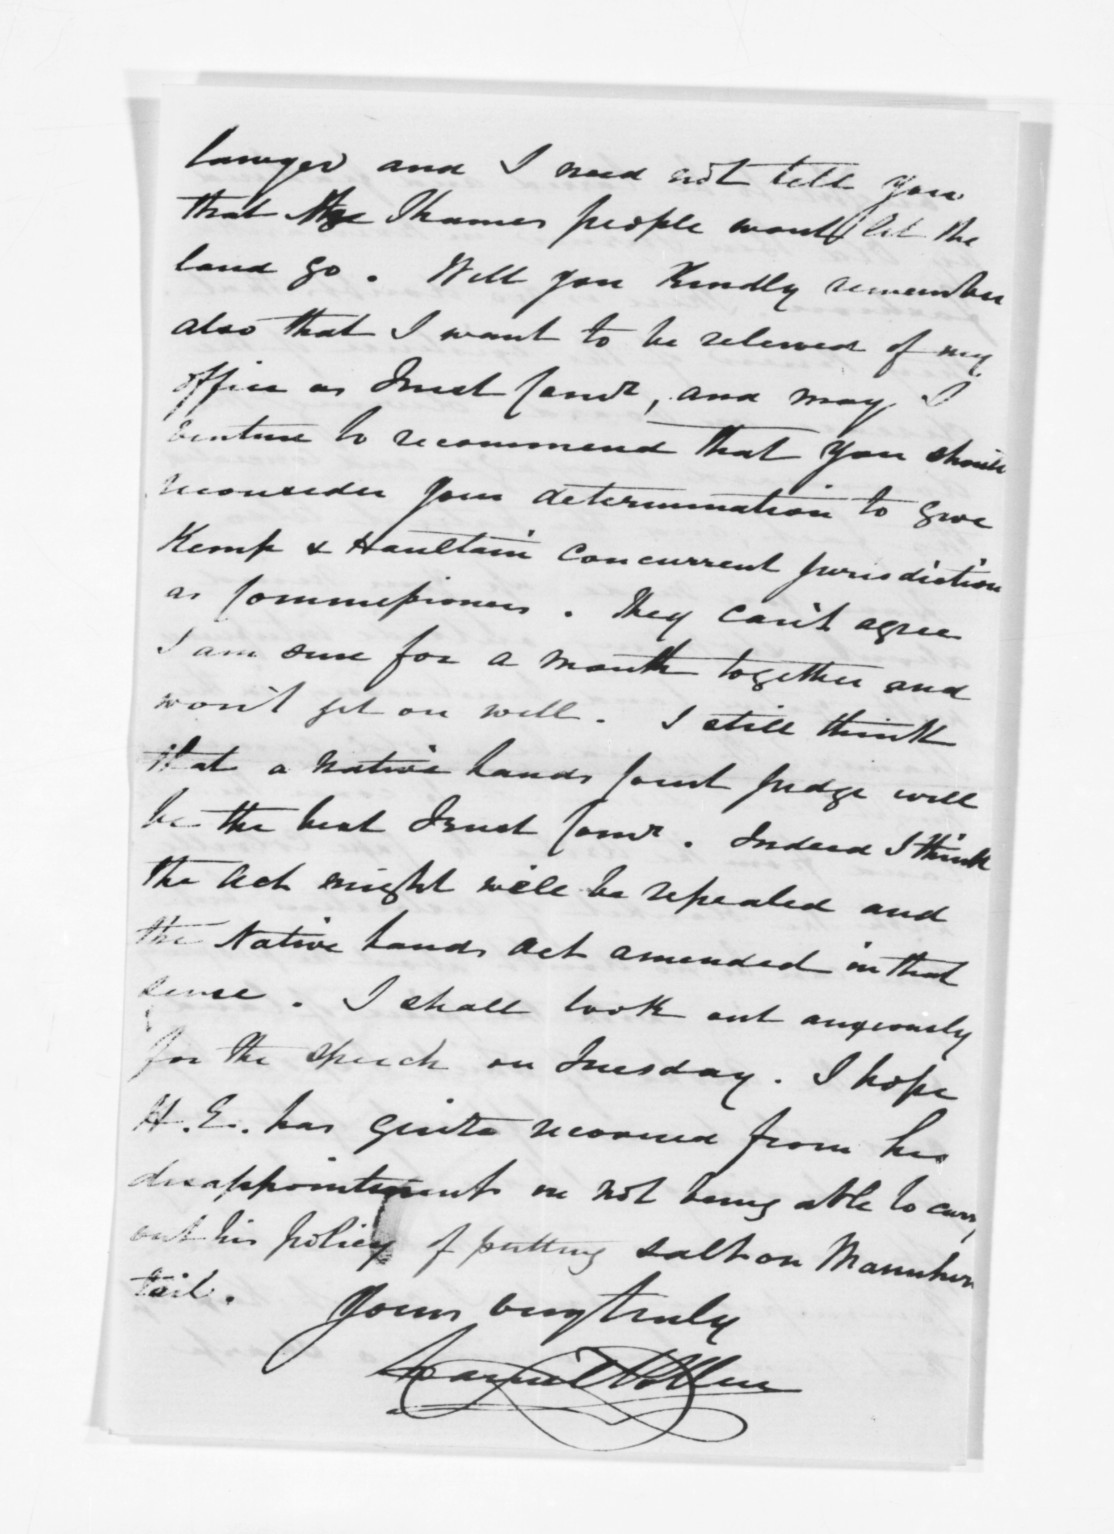 lawyer and I need not tell you
that the Thames people wont let the
land go. Will you Kindly remember
also that I want to be relieved of my
office as Trust Comr, and may I
venture to recommend that you should
reconsider your determination to give
Kemp & Haultain concurrent jurisdiction
as Commissioners. They can't agree
I am sure for a month together and
won't get on well. I still think
that a Native Lands Court Judge will
be the best Trust Comr. Indeed I think
the Act might well be repealed and
the Native Lands Act amended in that
sense. I shall look out anxiously
for the speech on Tuesday. I hope
H.E. has quite recovered from his
disappointment in not being able to carry
out his policy of putting salt on Manuhiri
tail.
Yours very truly
Daniel Pollen